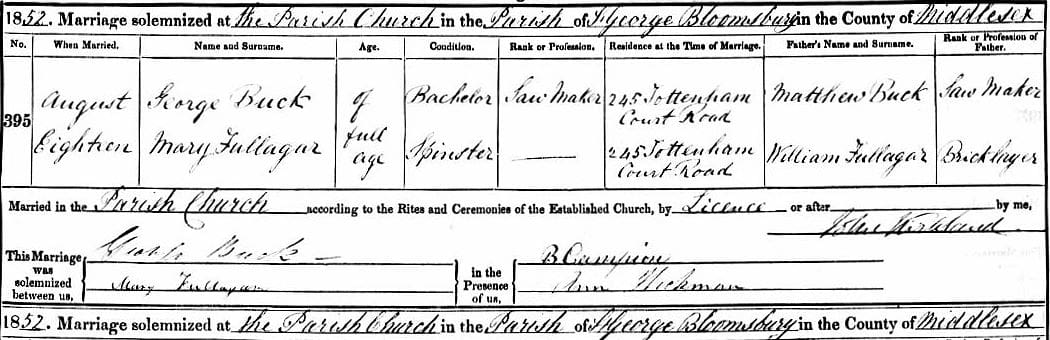 1852. Marriage solemnized at the Parish Church in the Parish of St George Bloomsbury in the County of Middlesex
No. When Married. Name and Surname. Age. Condition. Rank or Profession. Residence at the Time of Marriage. Father's Name and Surname. Rank or Profession of Father.
395 August Eighteen
George Buck of full age Bachelor Saw Maker 245 Tottenham Court Road Matthew Buck Saw Maker
Mary Fullagar Spinster — 245 Tottenham Court Road William Fullagar Bricklayer
Married in the Parish Church according to the Rites and Ceremonies of the Established Church, by Licence or after by me,
John Kirkland
This Marriage was solemnized between us, George Buck
Mary Fullagar
in the Presence of us, B Campion
Ann Hickman
1852. Marriage solemnized at the Parish Church in the Parish of St George Bloomsbury in the County of Middlesex